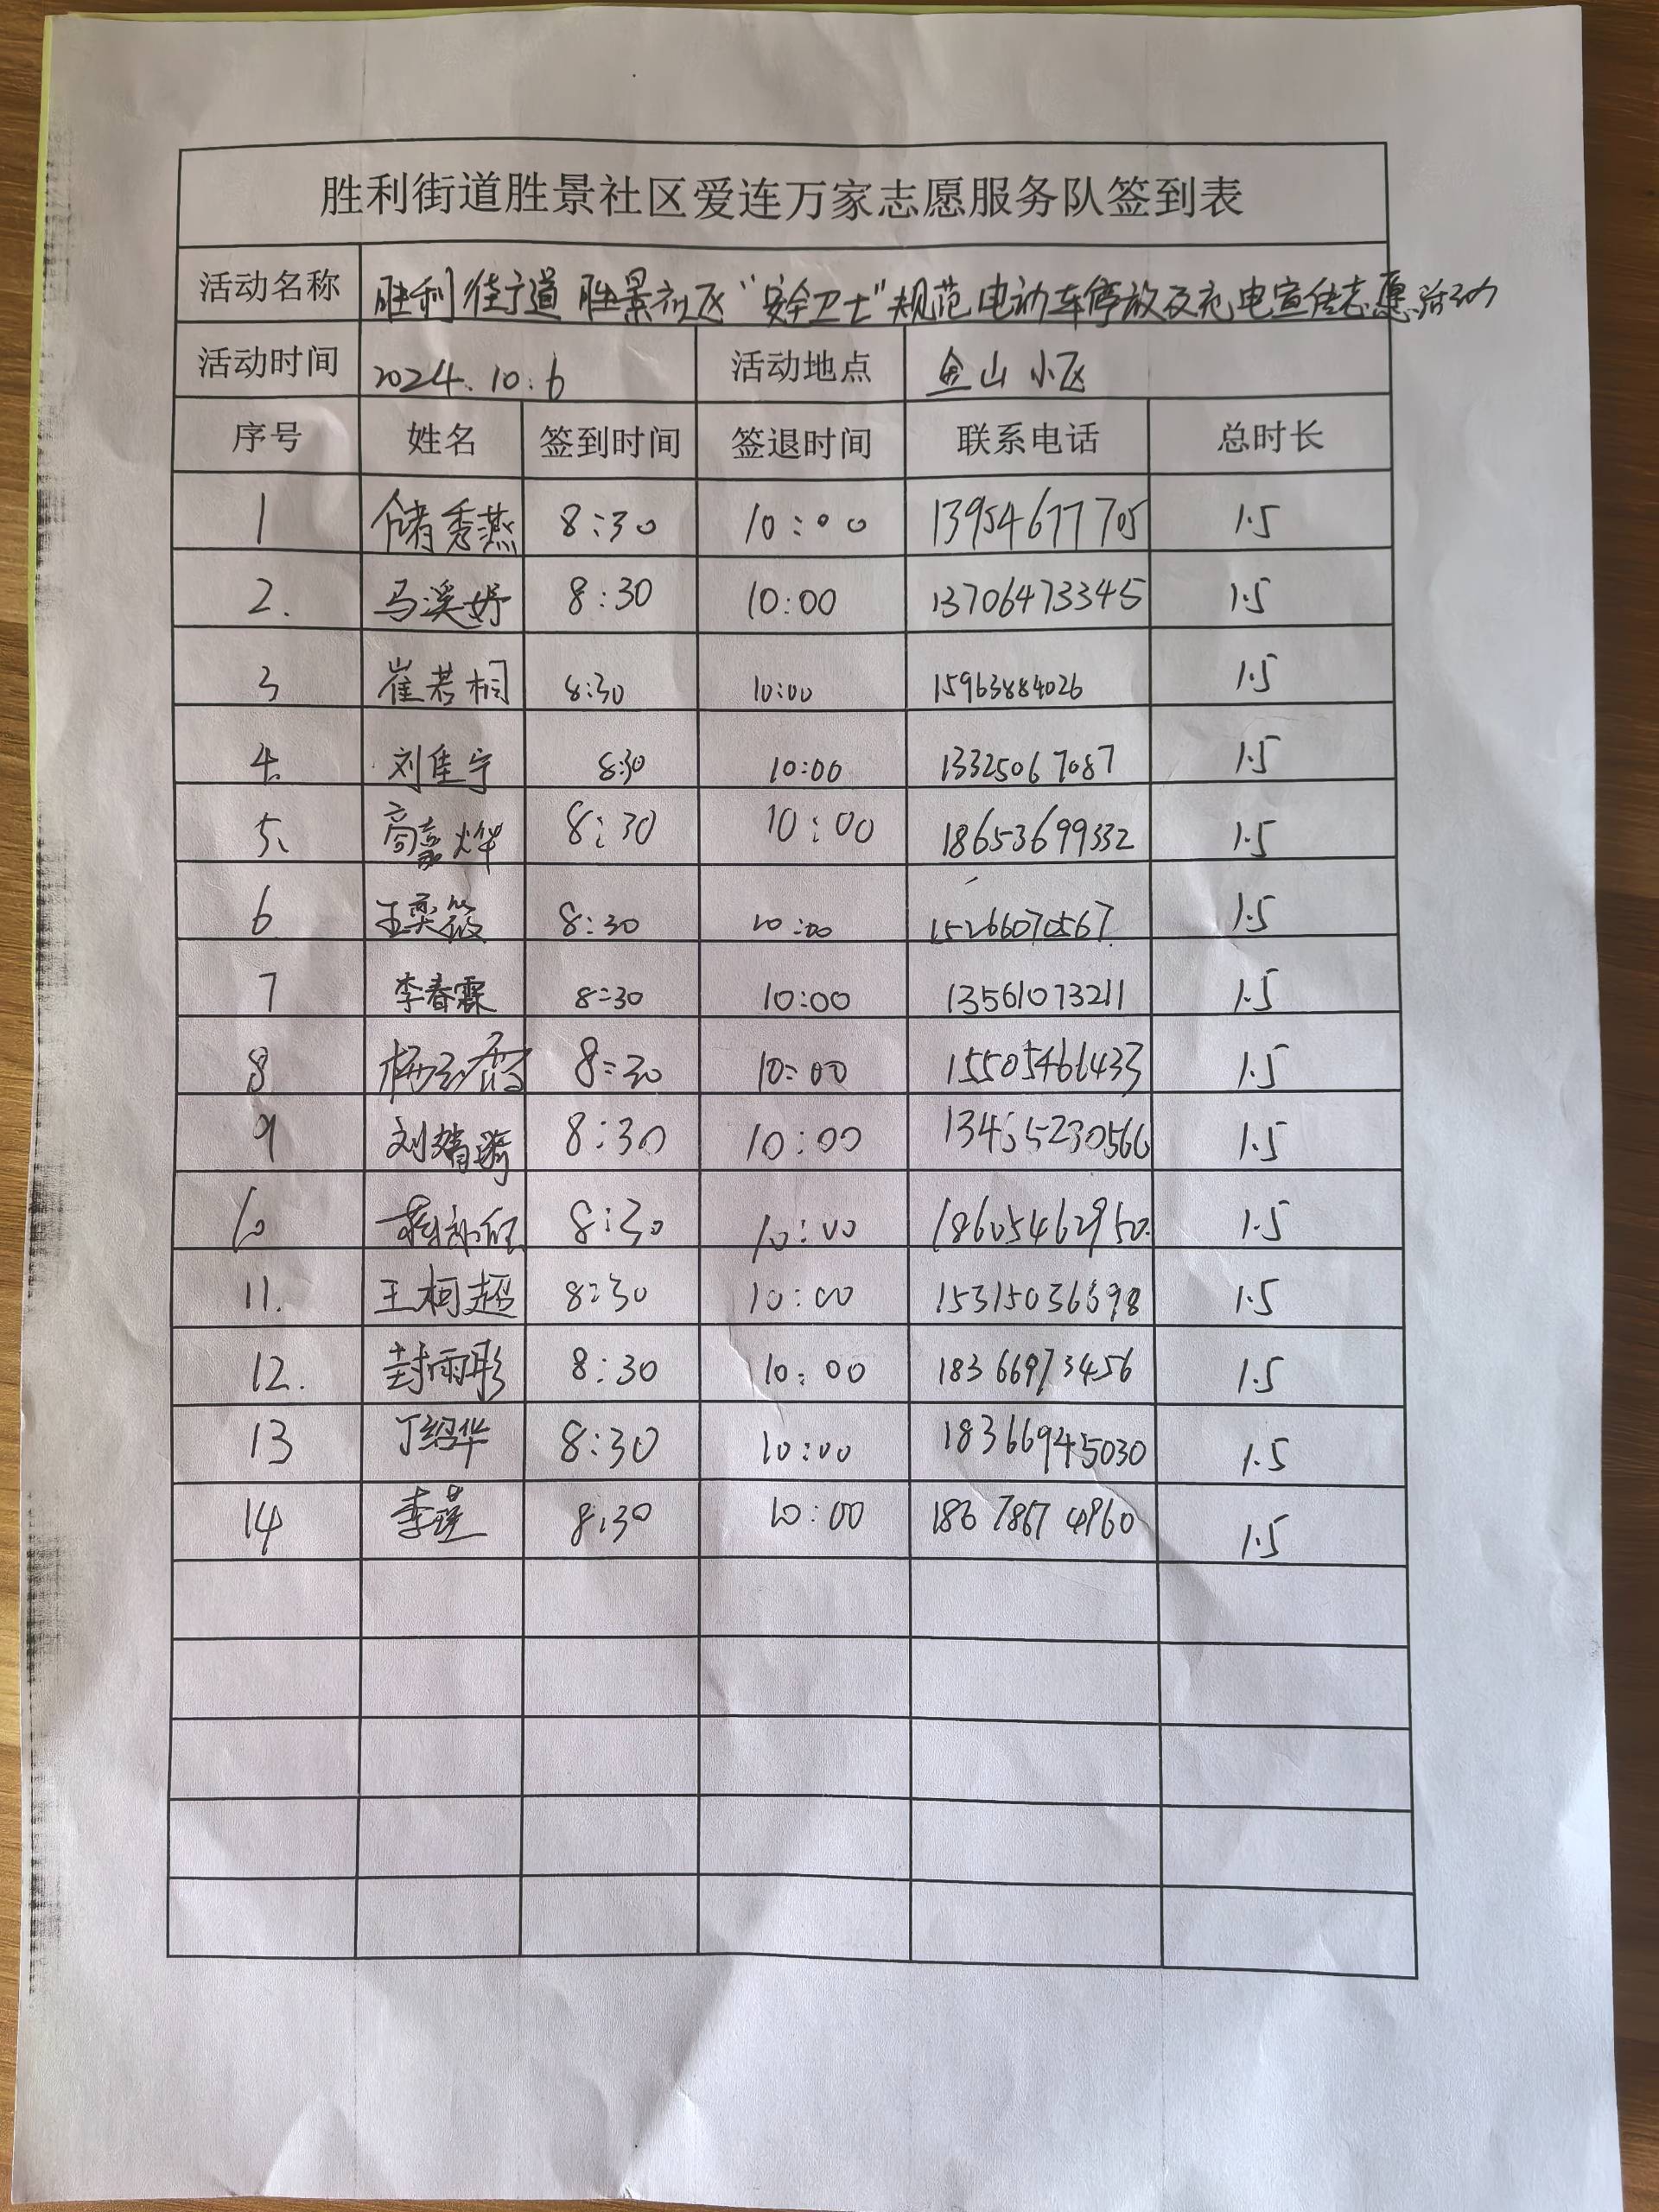 胜利街道胜景社区爱连万家志愿服务队签到表
活动名称 胜利街道胜景社区“安全卫士”规范电动车停放及充电宣传志愿活动
活动时间 2024.10.6 活动地点 金山小区
序号 姓名 签到时间 签退时间 联系电话 总时长
1 储秀燕 8:30 10:00 13954677705 1.5
2. 马溪妤 8:30 10:00 13706473345 1.5
3 崔若桐 8:30 10:00 15963884026 1.5
4. 刘佳宁 8:30 10:00 13325067087 1.5
5、 高豪烨 8:30 10:00 18653699332 1.5
6 王奕筱 8:30 10:00 15266070567 1.5
7 李春霖 8:30 10:00 13561073211 1.5
8 8:30 10:00 15505461433 1.5
9 刘 8:30 10:00 13455230566 1.5
10 8:30 10:00 18605462950 1.5
11. 王柯超 8:30 10:00 15315036698 1.5
12. 封雨彤 8:30 10:00 18366973456 1.5
13 丁绍华 8:30 10:00 18366945030 1.5
14 李 8:30 10:00 1.5